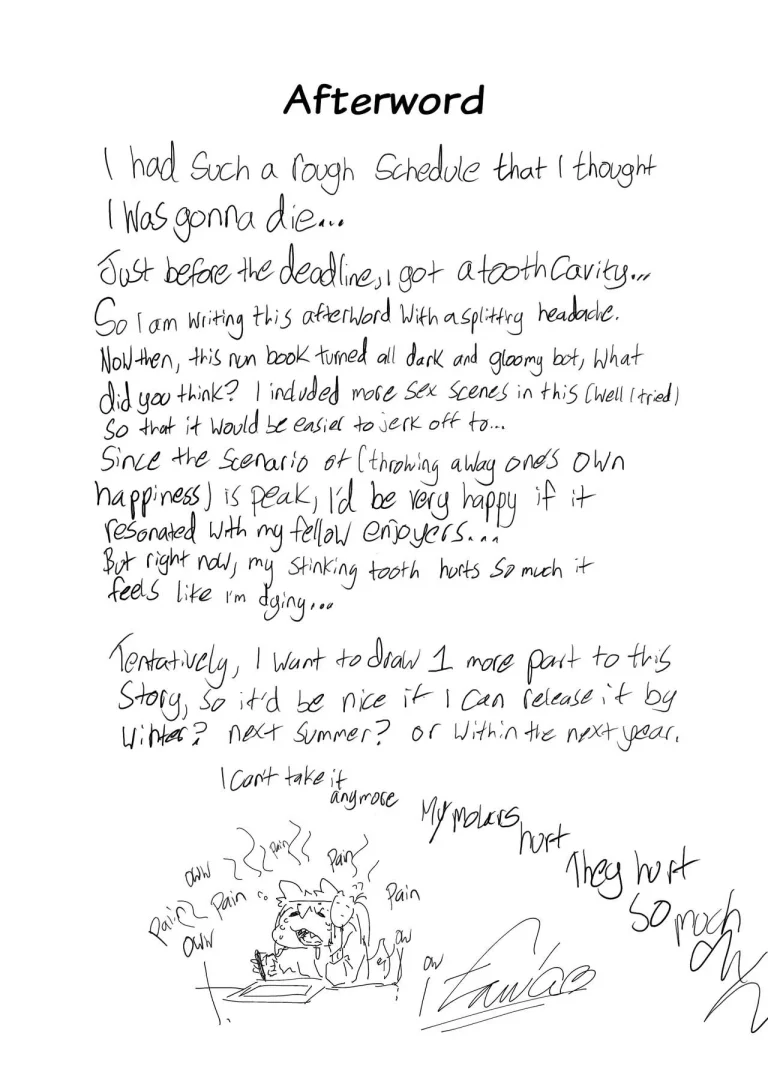 Afterword
I had such a rough schedule that I thought
I was gonna die...
Just before the deadline, I got a tooth cavity...
So I am writing this afterword with a splitting headache.
Now then, this nun book turned all dark and gloomy bot, what
did you think? I included more sex scenes in this (well I tried)
so that it would be easier to jerk off to...
Since the scenario of (throwing away one's own
happiness) is peak, I'd be very happy if it
resonated with my fellow enjoyers...
But right now, my stinking tooth hurts so much it
feels like I'm dying...
Tentatively, I want to draw 1 more part to this
story, so it'd be nice if I can release it by
winter? next summer? or within the next year.
I can't take it
anymore
My molars
hurt
They hurt
so much
OW
Pain
Pain
Pain
oww
Pain
Pain
oww
ow
ow